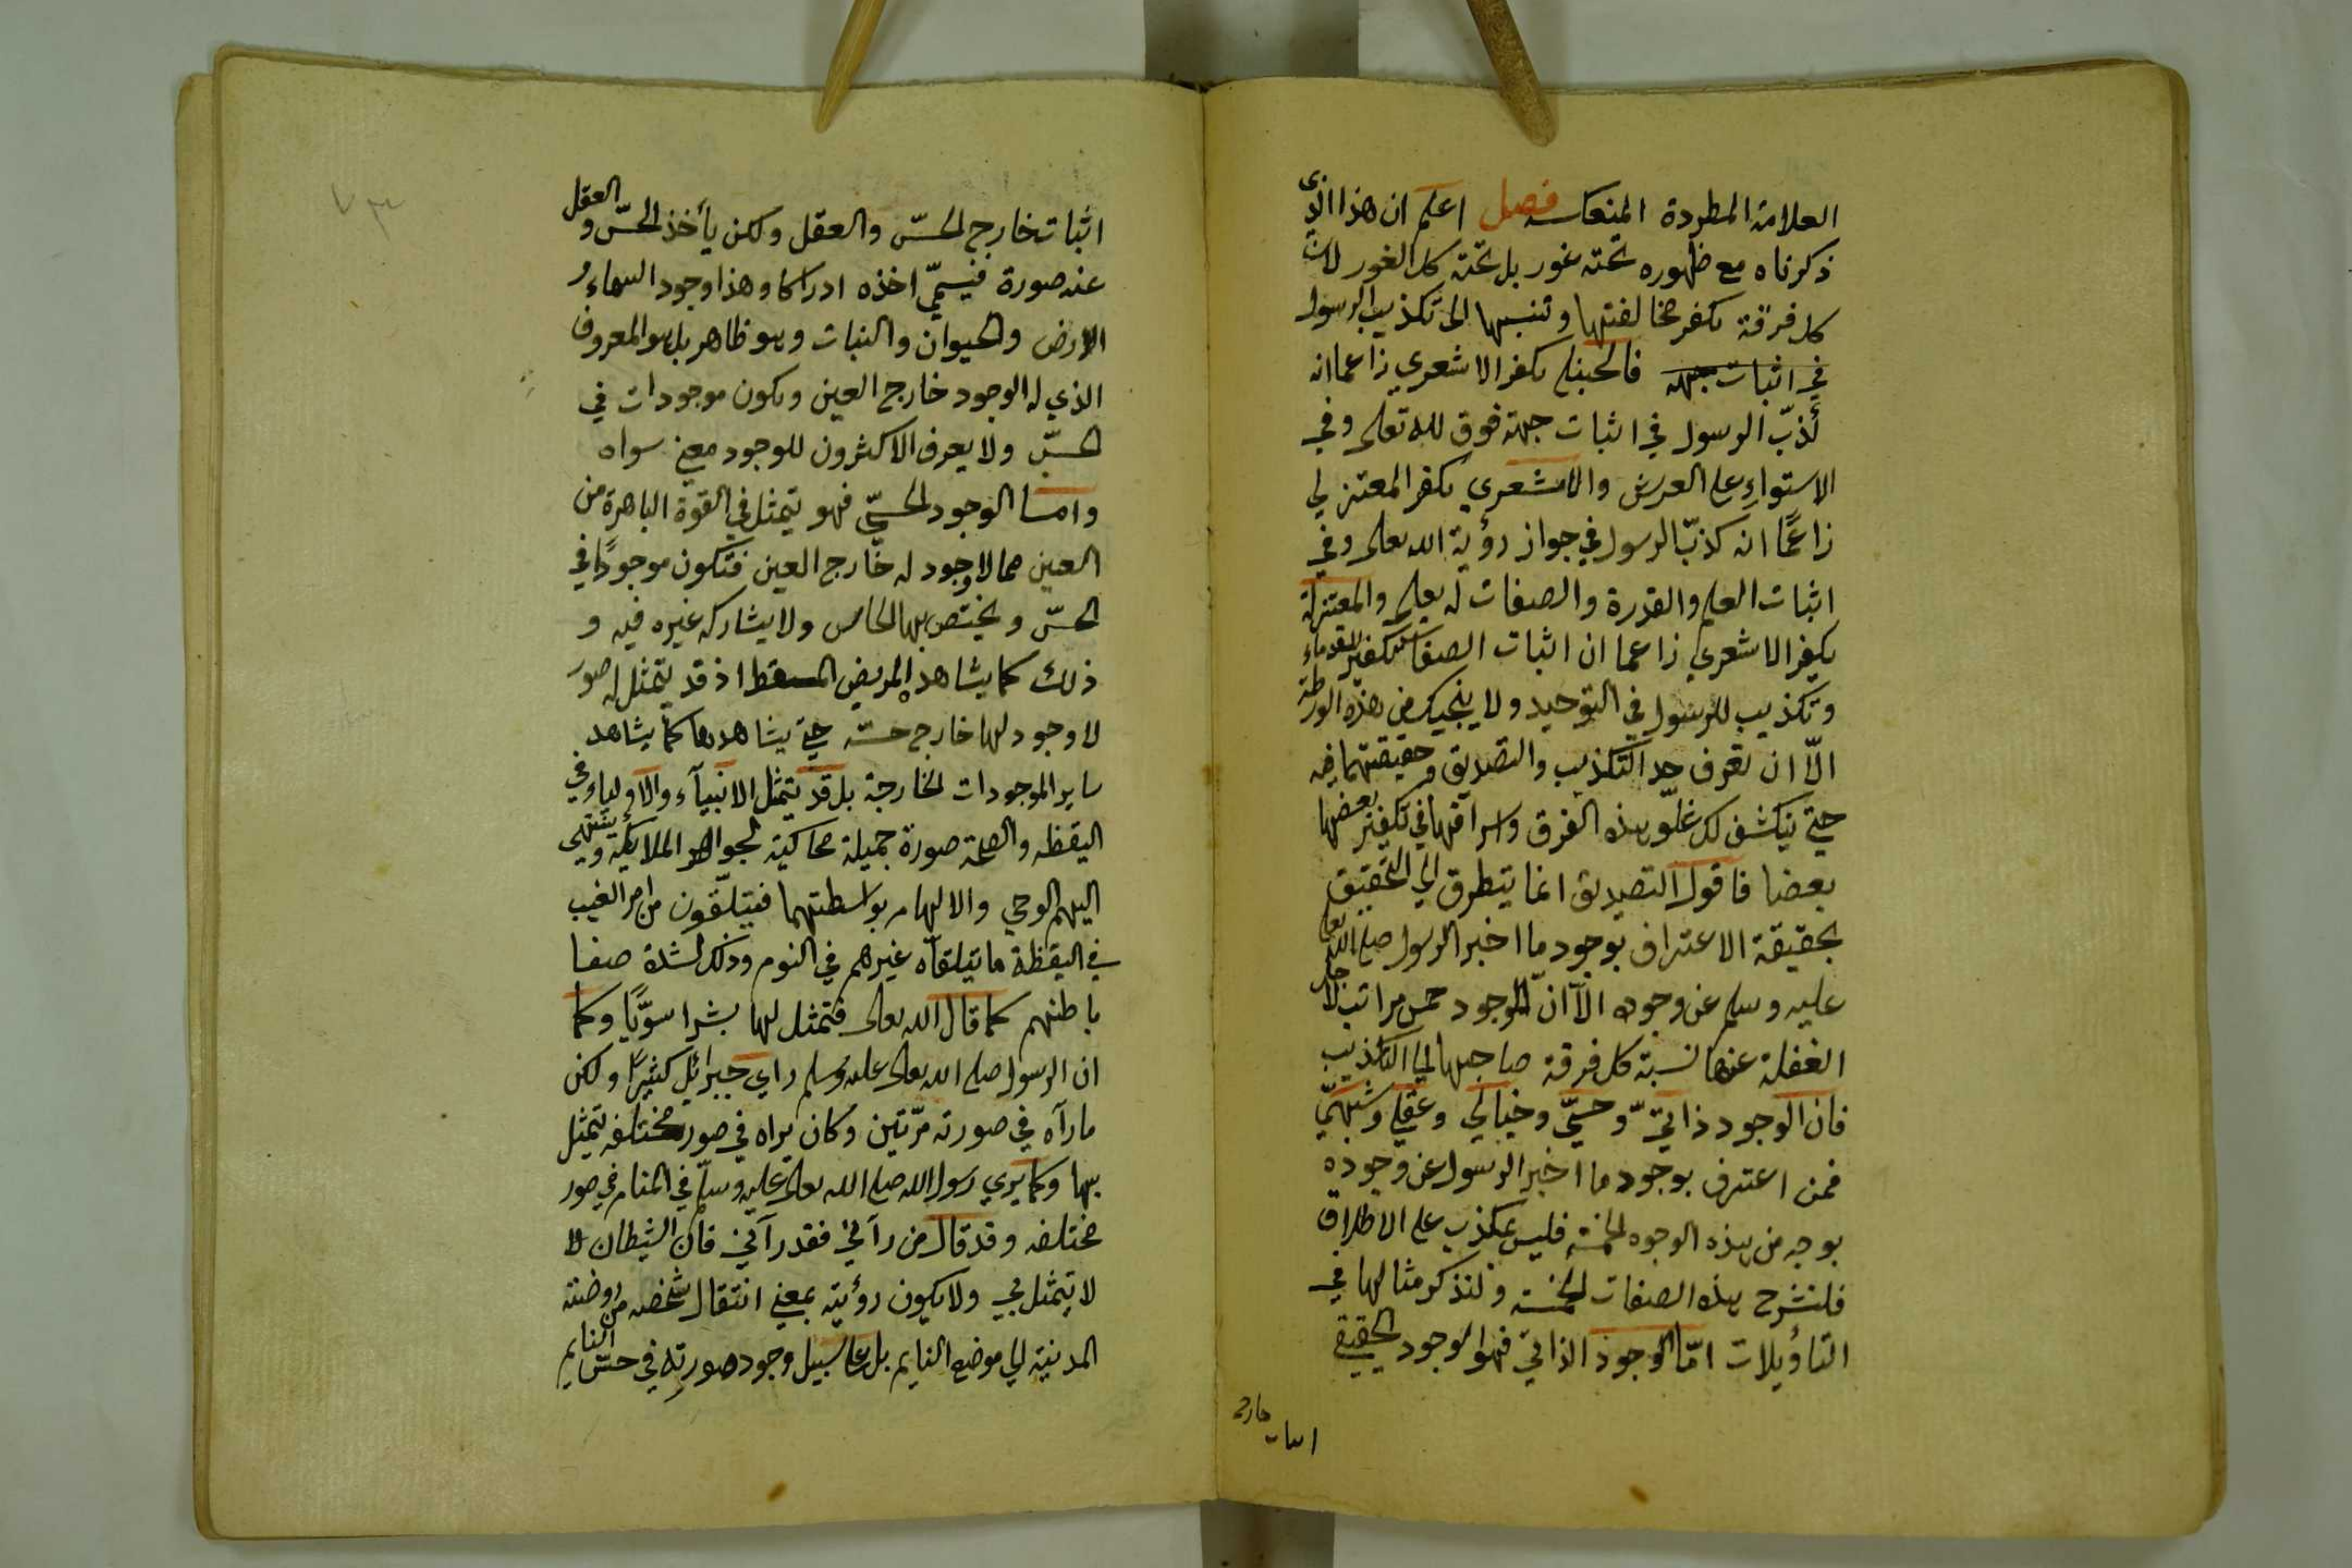 العلامة المطردة المنعكسه فصل اعلم ان هذا الذي
ذكرناه مع ظهوره تحته غور بل تحته كل الغور لان
كل فرقة يكفر مخالفتها وتنسبها الى تكذيب الرسول
في اثبات جهه فالحنبلي يكفر الاشعري زاعما انه
كذّب الرسول في اثبات جهة فوق لله تعلى وفي
الاستواءِ على العرش والاشعري يكفر المعتزلي
زاعمًا انه كذّب الرسول في جواز رؤية الله تعلى وفي
اثبات العلم والقدرة والصفات له تعلى والمعتزلة
يكفر الاشعري زاعما ان اثبات الصفات تكفير للقدماء
وتكذيب للرسول في التوحيد ولا ينجيك من هذه الورطة
الّا ان تعرف حد التكذيب والتصديق وحقيقتهما فيه
حتى ينكشف لك غلوّ هذه الفرق واسرافها في تكفير بعضها
بعضا فاقول التصديق انما يتطرق الى التحقيق
بحقيقة الاعتراف بوجود ما اخبر الرسول صلى الله تعلى
عليه وسلم عن وجوده الّا انّ للوجود خمس مراتب لاجل
الغفلة عنها نسبة كل فرقة صاحبها الى التكذيب
فان الوجود ذاتيّ وحسّيّ وخيالي وعقلي وشبهيّ
فمن اعترف بوجود ما اخبر الرسول عن وجوده
بوجه من هذه الوجوه الخمسة فليس بمكذب على الاطلاق
فلنشرح هذه الصفات الخمسة ولنذكر مثالها في
التأويلات امّا الوجود الذاتي فهو الوجود الحقيقي
اثبات خارج
اثبات خارج الحسّ والعقل ولكن يأخذ الحسّ والعقل
عنه صورة فيسمّى اخذه ادراكا وهذا وجود السماءِ و
الارض والحيوان والنبات وهو ظاهر بل هو المعروف
الذي له الوجود خارج العين ويكون موجودات في
الحسّ ولا يعرف الاكثرون للوجود معنى سواه
وامّا الوجود الحسّيّ فهو يتمثل في القوة الباهرة من
العين مما لا وجود له خارج العين فتكون موجودًا في
الحسّ ويختص بها الحاس ولا يشاركه غيره فيه و
ذلك كما يشاهد المريض المسقط اذ قد يتمثل له صور
لا وجود لها خارج حسّه حتى يشاهدها كما يشاهد
ساير الموجودات الخارجة بل قد يتمثل الانبيآء والاولياء في
اليقظه والصحّة صورة جميلة محاكية لجواهر الملائكة وينتهي
اليهم الوحي والالهام بواسطتهما فيتلقّون من امر الغيب
في اليقظة ما يتلقاه غيرهم في النوم وذلك لشدة صفا
باطنهم كما قال الله تعالى فتمثل لها بشرا سوّيًا وكما
ان الرسول صلى الله تعالى عليه وسلم راى جبرائل كثيرًا ولكن
ما رآه في صورته مرّتين وكان يراه في صور مختلفه تمثيل
بها وكما يرى رسول الله صلى الله تعالى عليه وسلّم في المنام في صور
مختلفه وقد قال من رآني فقد رآني فان الشيطان لا
لا يتمثل بي ولا يكون رؤيته بمعنى انتقال شخصه من روضته
المدينة الى موضع النايم بل على سبيل وجود صورته في حسّ النايم